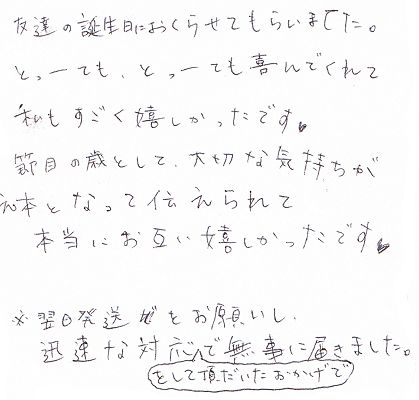 友達の誕生日におくらせてもらいました。
とっーても、とっーても喜んでくれて
私もすごく嬉しかったです。
節目の歳として、大切な気持ちが
絵本となって伝えられて
本当にお互い嬉しかったです。
※翌日発送をお願いし、
迅速な対応で無事に届きました。
をして頂だいたおかげで